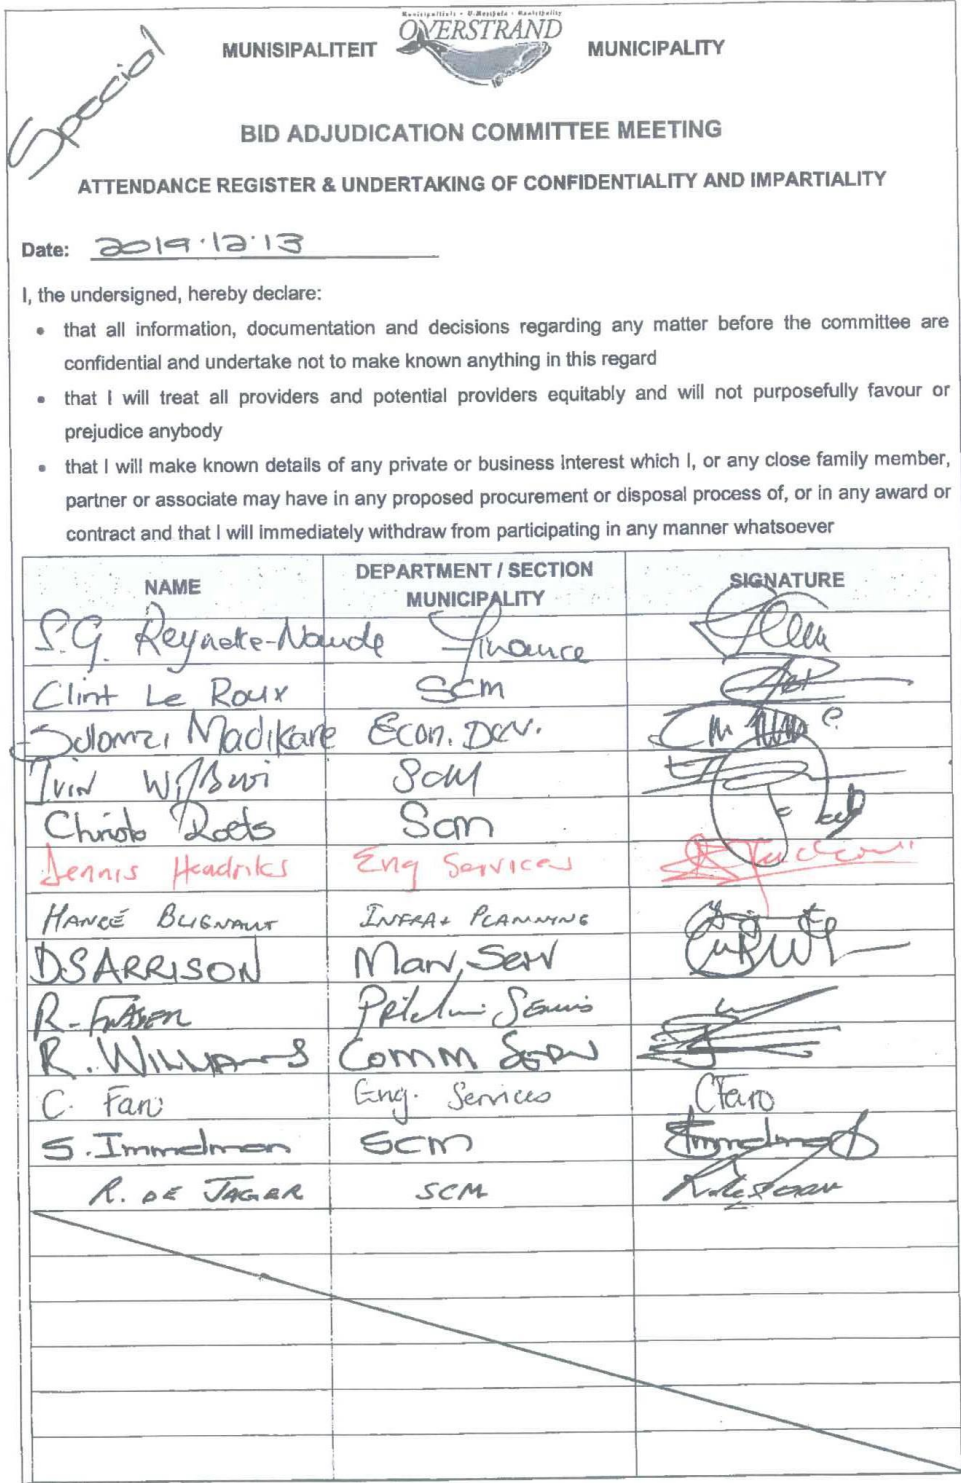 Special
Munisipaliteit • U-Masipala • Municipality
MUNISIPALITEIT OVERSTRAND MUNICIPALITY
BID ADJUDICATION COMMITTEE MEETING
ATTENDANCE REGISTER & UNDERTAKING OF CONFIDENTIALITY AND IMPARTIALITY
Date: 2019.12.13
I, the undersigned, hereby declare:
• that all information, documentation and decisions regarding any matter before the committee are
confidential and undertake not to make known anything in this regard
• that I will treat all providers and potential providers equitably and will not purposefully favour or
prejudice anybody
• that I will make known details of any private or business interest which I, or any close family member,
partner or associate may have in any proposed procurement or disposal process of, or in any award or
contract and that I will immediately withdraw from participating in any manner whatsoever
NAME DEPARTMENT / SECTION MUNICIPALITY SIGNATURE
S.G. Reyneke-Naude Finance
Clint Le Roux SCM
Solomzi Madikane Econ. Dev.
SCM
Christo Roets SCM
Dennis Hendriks Eng Services
HANCÉ BLIGNAUT INFRA+ PLANNING
D S ARRISON Man, Serv
R. FRASER
R. WILLIAMS Comm Serv
C. Faro Eng. Services CFaro
S. Immelman SCM Immelman
R. DE JAGER SCM R. de Jager